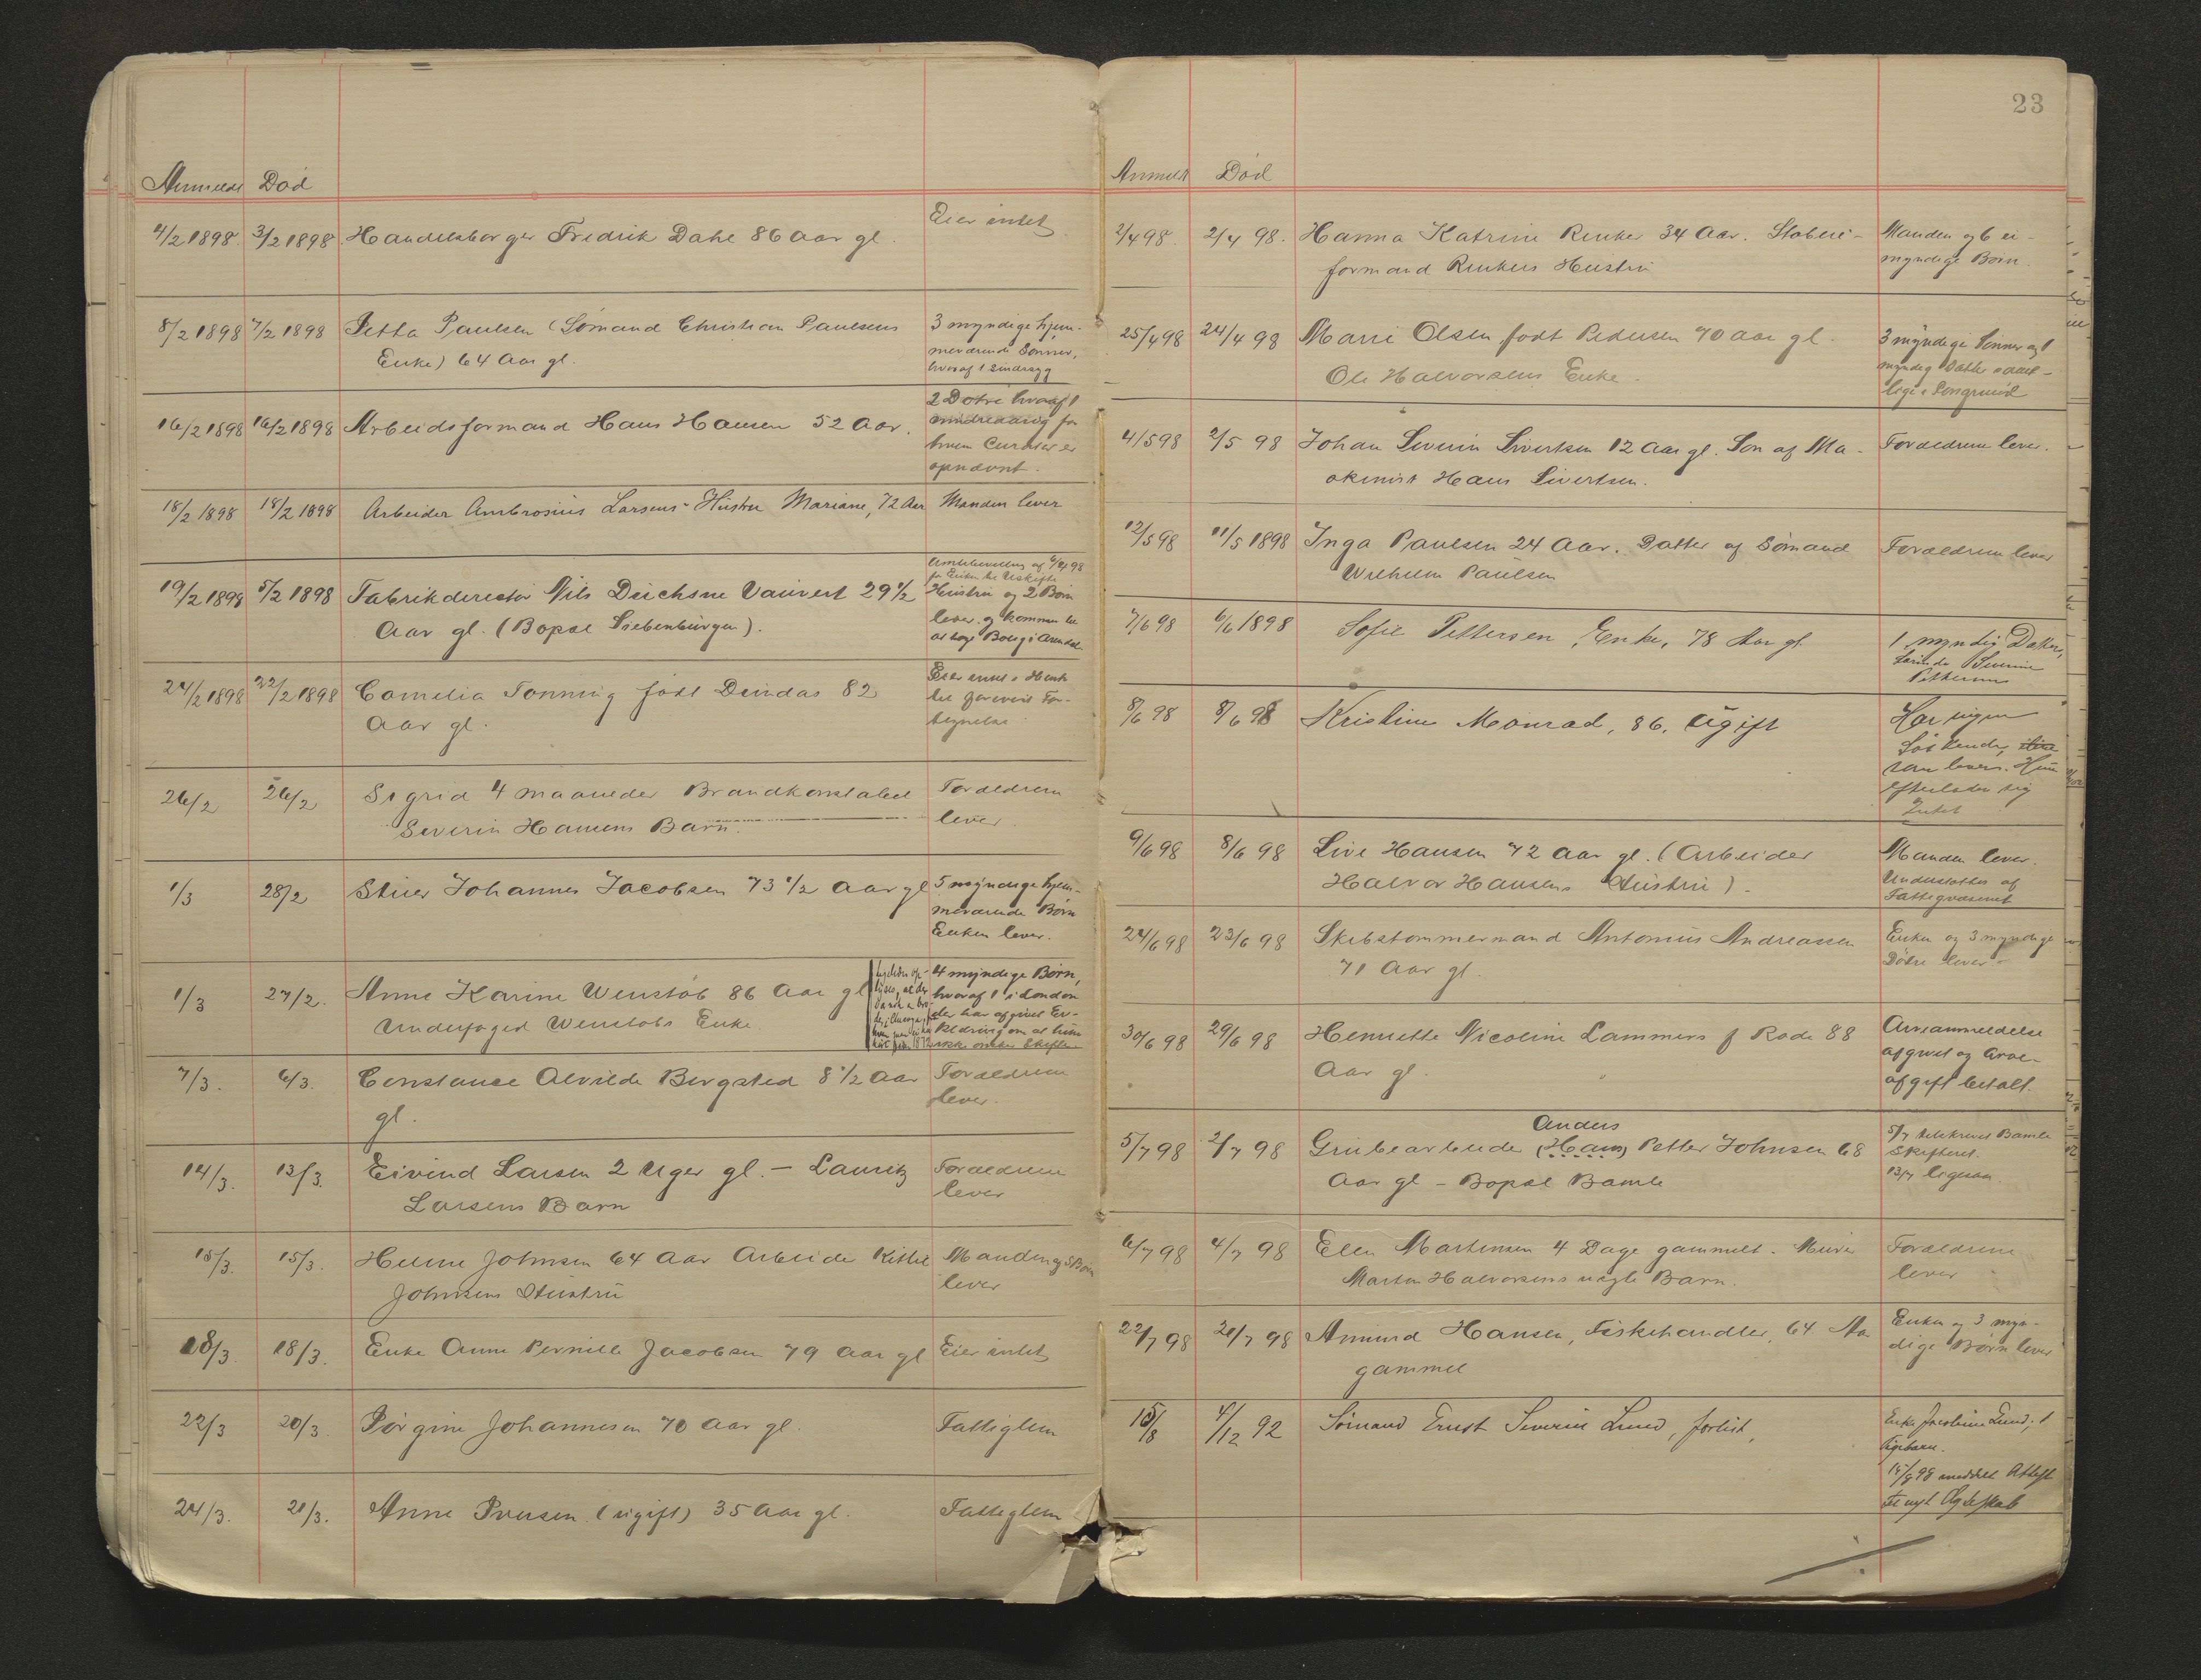 Anmeldt Død
4/2 1898 3/2 1898 Handelsborger Fredrik Dahl 86 aar gl. Eier intet
8/2 1898 7/2 1898 Petha Paulsen (Sømand Christian Paulsens 3 myndige hjem-
Enke) 64 Aar gl. meværende Sønner,
hvoraf 1 sindssyg
16/2 1898 16/2 1898 Arbeidsformand Hans Hansen 52 Aar. 2 Døtre hvoraf 1
mindreaarig for
hvem Curator er
opnævnt.
18/2 1898 18/2 1898 Arbeider Ambrosius Larsens Hustru Mariane, 72 Aar Manden lever
19/2 1898 5/2 1898 Fabrikdirector Nils Deichmn Vauvert 29 1/2 Hustru og 2 Børn
Aar gl. (Bopæl Siebenbürgen). lever og kommer til
at tage Bolig i Arendal
24/2 1898 22/2 1898 Cornelia Tonning født Dundas 82
Aar gl.
26/2 26/2 Sigrid 4 maaneder Brandkonstabel Forældrene
Severin Hansens Barn. lever.
1/3 28/2 Stuer Johannes Jacobsen 73 1/2 Aar gl 5 myndige hjem-
meværende Børn
Enken lever.
1/3 27/2. Anne Karine Wenstøb 86 Aar gl 4 myndige Børn,
Underfoged Wenstøbs Enke. hvoraf 1 i London
der har afgivet Er-
klæring om at hun
ikke ønsker Skifte
7/3. 6/3. Constance Alvilde Bergsted 8 1/2 Aar Forældrene
gl. lever.
14/3. 13/3. Eivind Larsen 2 Uger gl. - Lauritz Forældrene
Larsens Barn lever
15/3. 15/3. Helene Johnsen 64 Aar Arbeider Kittel Manden og 5 Børn
Johnsens Hustru lever
18/3. 18/3. Enke Anne Pernille Jacobsen 79 Aar gl Eier intet
22/3 20/3 Jørgine Johannesen 70 Aar gl. Fattiglem
24/3. 21/3. Anne Iversen (ugift) 35 Aar gl. Fattiglem
23
Anmeldt Død
2/4 98 2/4 98. Hanna Katrine Renker 34 Aar. Støberi- Manden og 6 u-
formand Renkers Hustru myndige Børn
25/4 98 24/4 98 Marie Olsen født Pedersen 70 aar gl. 3 myndige Sønner og 1
Ole Halvorsens Enke. myndig Datter samt-
lige i Porsgrund
4/5 98 2/5 98 Johan Severin Sivertsen 12 Aar gl. Søn af Ma- Forældrene lever.
skinist Hans Sivertsen.
12/5 98 11/5 1898 Inga Paulsen 24 Aar. Datter af Sømand Forældrene lever
Wilhelm Paulsen
7/6 98 6/6 1898 Sofie Pettersen, Enke, 78 Aar gl. 1 myndig Datter,
Severine
Pettersen
8/6 98 8/6 98 Kristine Monrad, 86, ugift Har ingen
Søskende,
som lever. Hun
efterlader sig
Intet
9/6 98 8/6 98 Live Hansen 72 aar gl. (Arbeider Manden lever.
Halvor Hansens Hustru). Understøttes af
Fattigvæsenet
24/6 98 23/6 98 Skibstømmermand Antonius Andreassen Enken og 3 myndige
71 Aar gl. Døtre lever -
30/6 98 29/6 98 Henriette Nicoline Lammers f Rode 88 Arveanmeldelse
Aar gl. afgivet og Arve-
afgift betalt.
Anders
5/7 98 2/7 98 Grubearbeider (Hans) Petter Johnsen 68 5/7 tilskrevet Bamle
Aar gl - Bopæl Bamle Skifteret.
13/7 ligesaa
6/7 98 4/7 98 Ellen Martinsen 4 Dage gammelt. Murer Forældrene
Martin Halvorsens uægte Barn. lever
22/7 98 21/7 98 Amund Hansen, Fiskehandler, 64 Aar Enken og 3 myn-
gammel dige Børn lever
15/8 4/12 92 Sømand Ernst Severin Lund, forlist, Enke Jacobine Lund, 1
Pigebarn.
15/8 98 meddelt Attest
til nyt Ægteskab